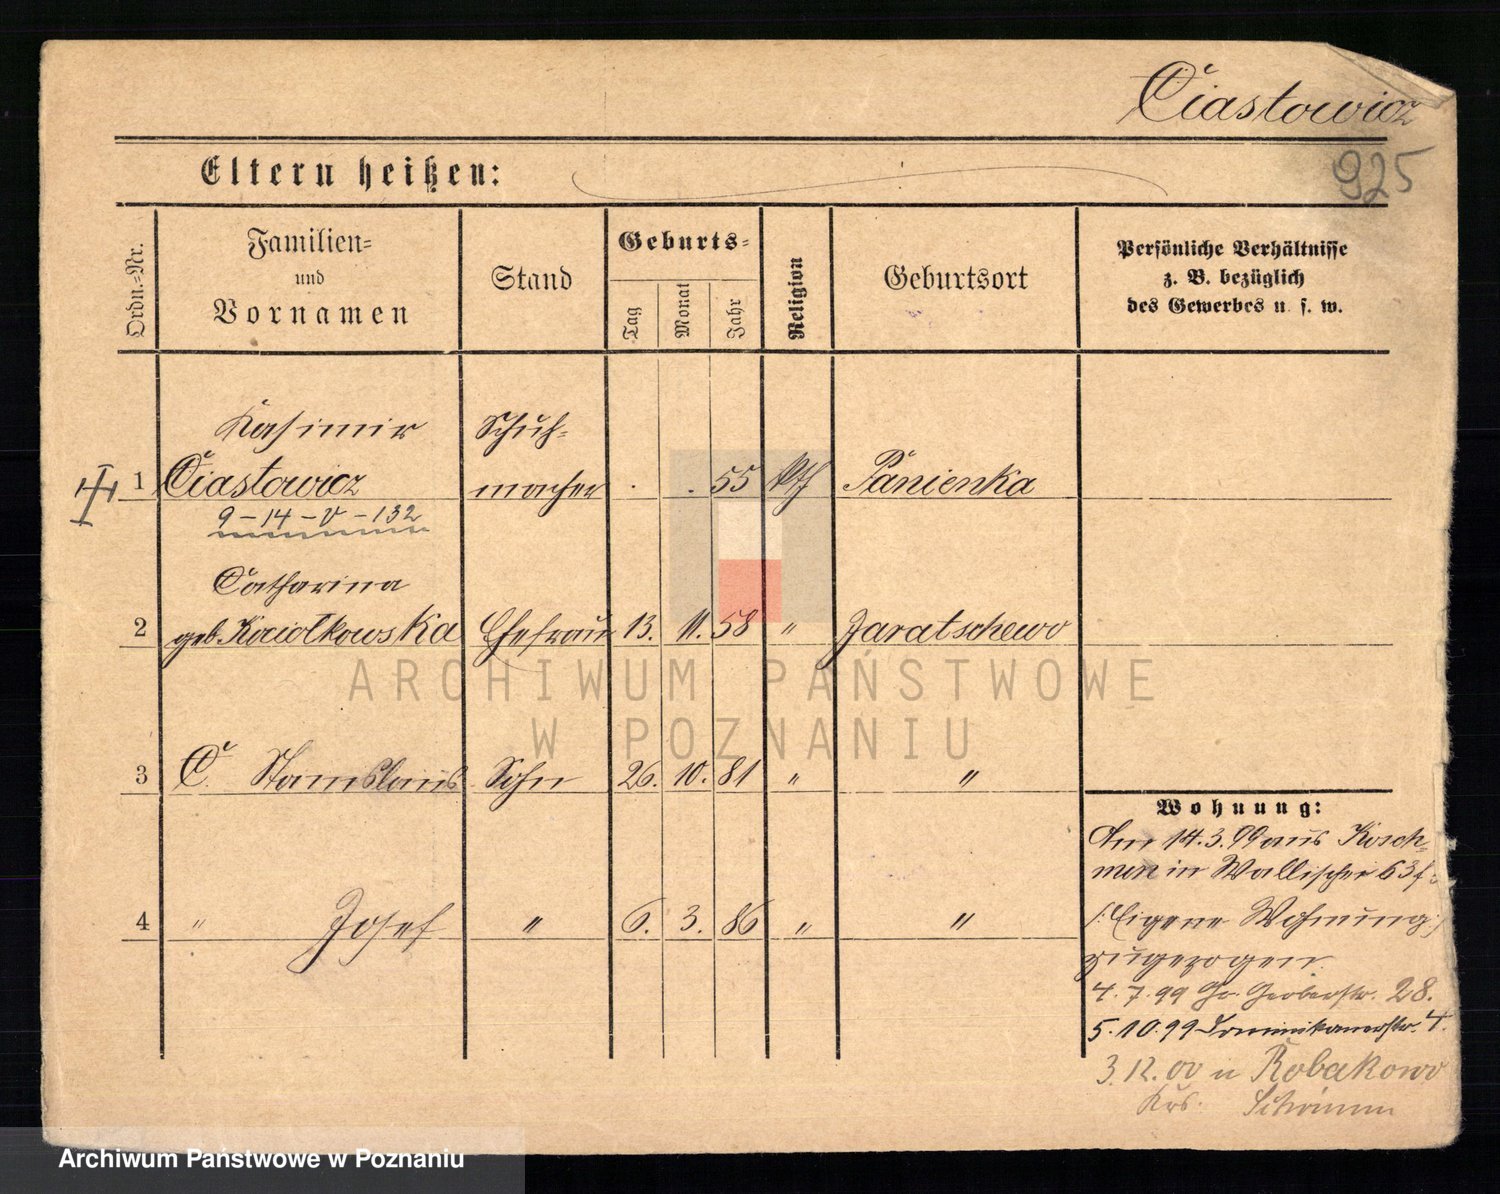 Ciastowicz
925
Eltern heißen:
Ordn.-Nr.
Familien-
und
Vornamen
Stand
Geburts-
Tag
Monat
Jahr
Religion
Geburtsort
Persönliche Verhältnisse
z. B. bezüglich
des Gewerbes u. s. w.
Kasimir Schuh-
1 Ciastowicz macher 55 kth Panienka
9-14-V-132
Catharina
2 geb. Kociołkowska Ehefrau 13. 11. 58 " Jaratschewo
3 C. Stanislaus Sohn 26. 10. 81 " "
4 " Josef " 6. 3. 86 " "
Wohnung:
Am 14.3.99 aus Kosch-
min in Wallischei 63
/: Eigene Wohnung :/
zugezogen.
4.7.99 Gr. Gerberstr. 28.
5.10.99 Dominikanerstr. 4.
3.12.00 n Robakowo
Krs. Schrimm
ARCHIWUM PAŃSTWOWE
W POZNANIU
Archiwum Państwowe w Poznaniu